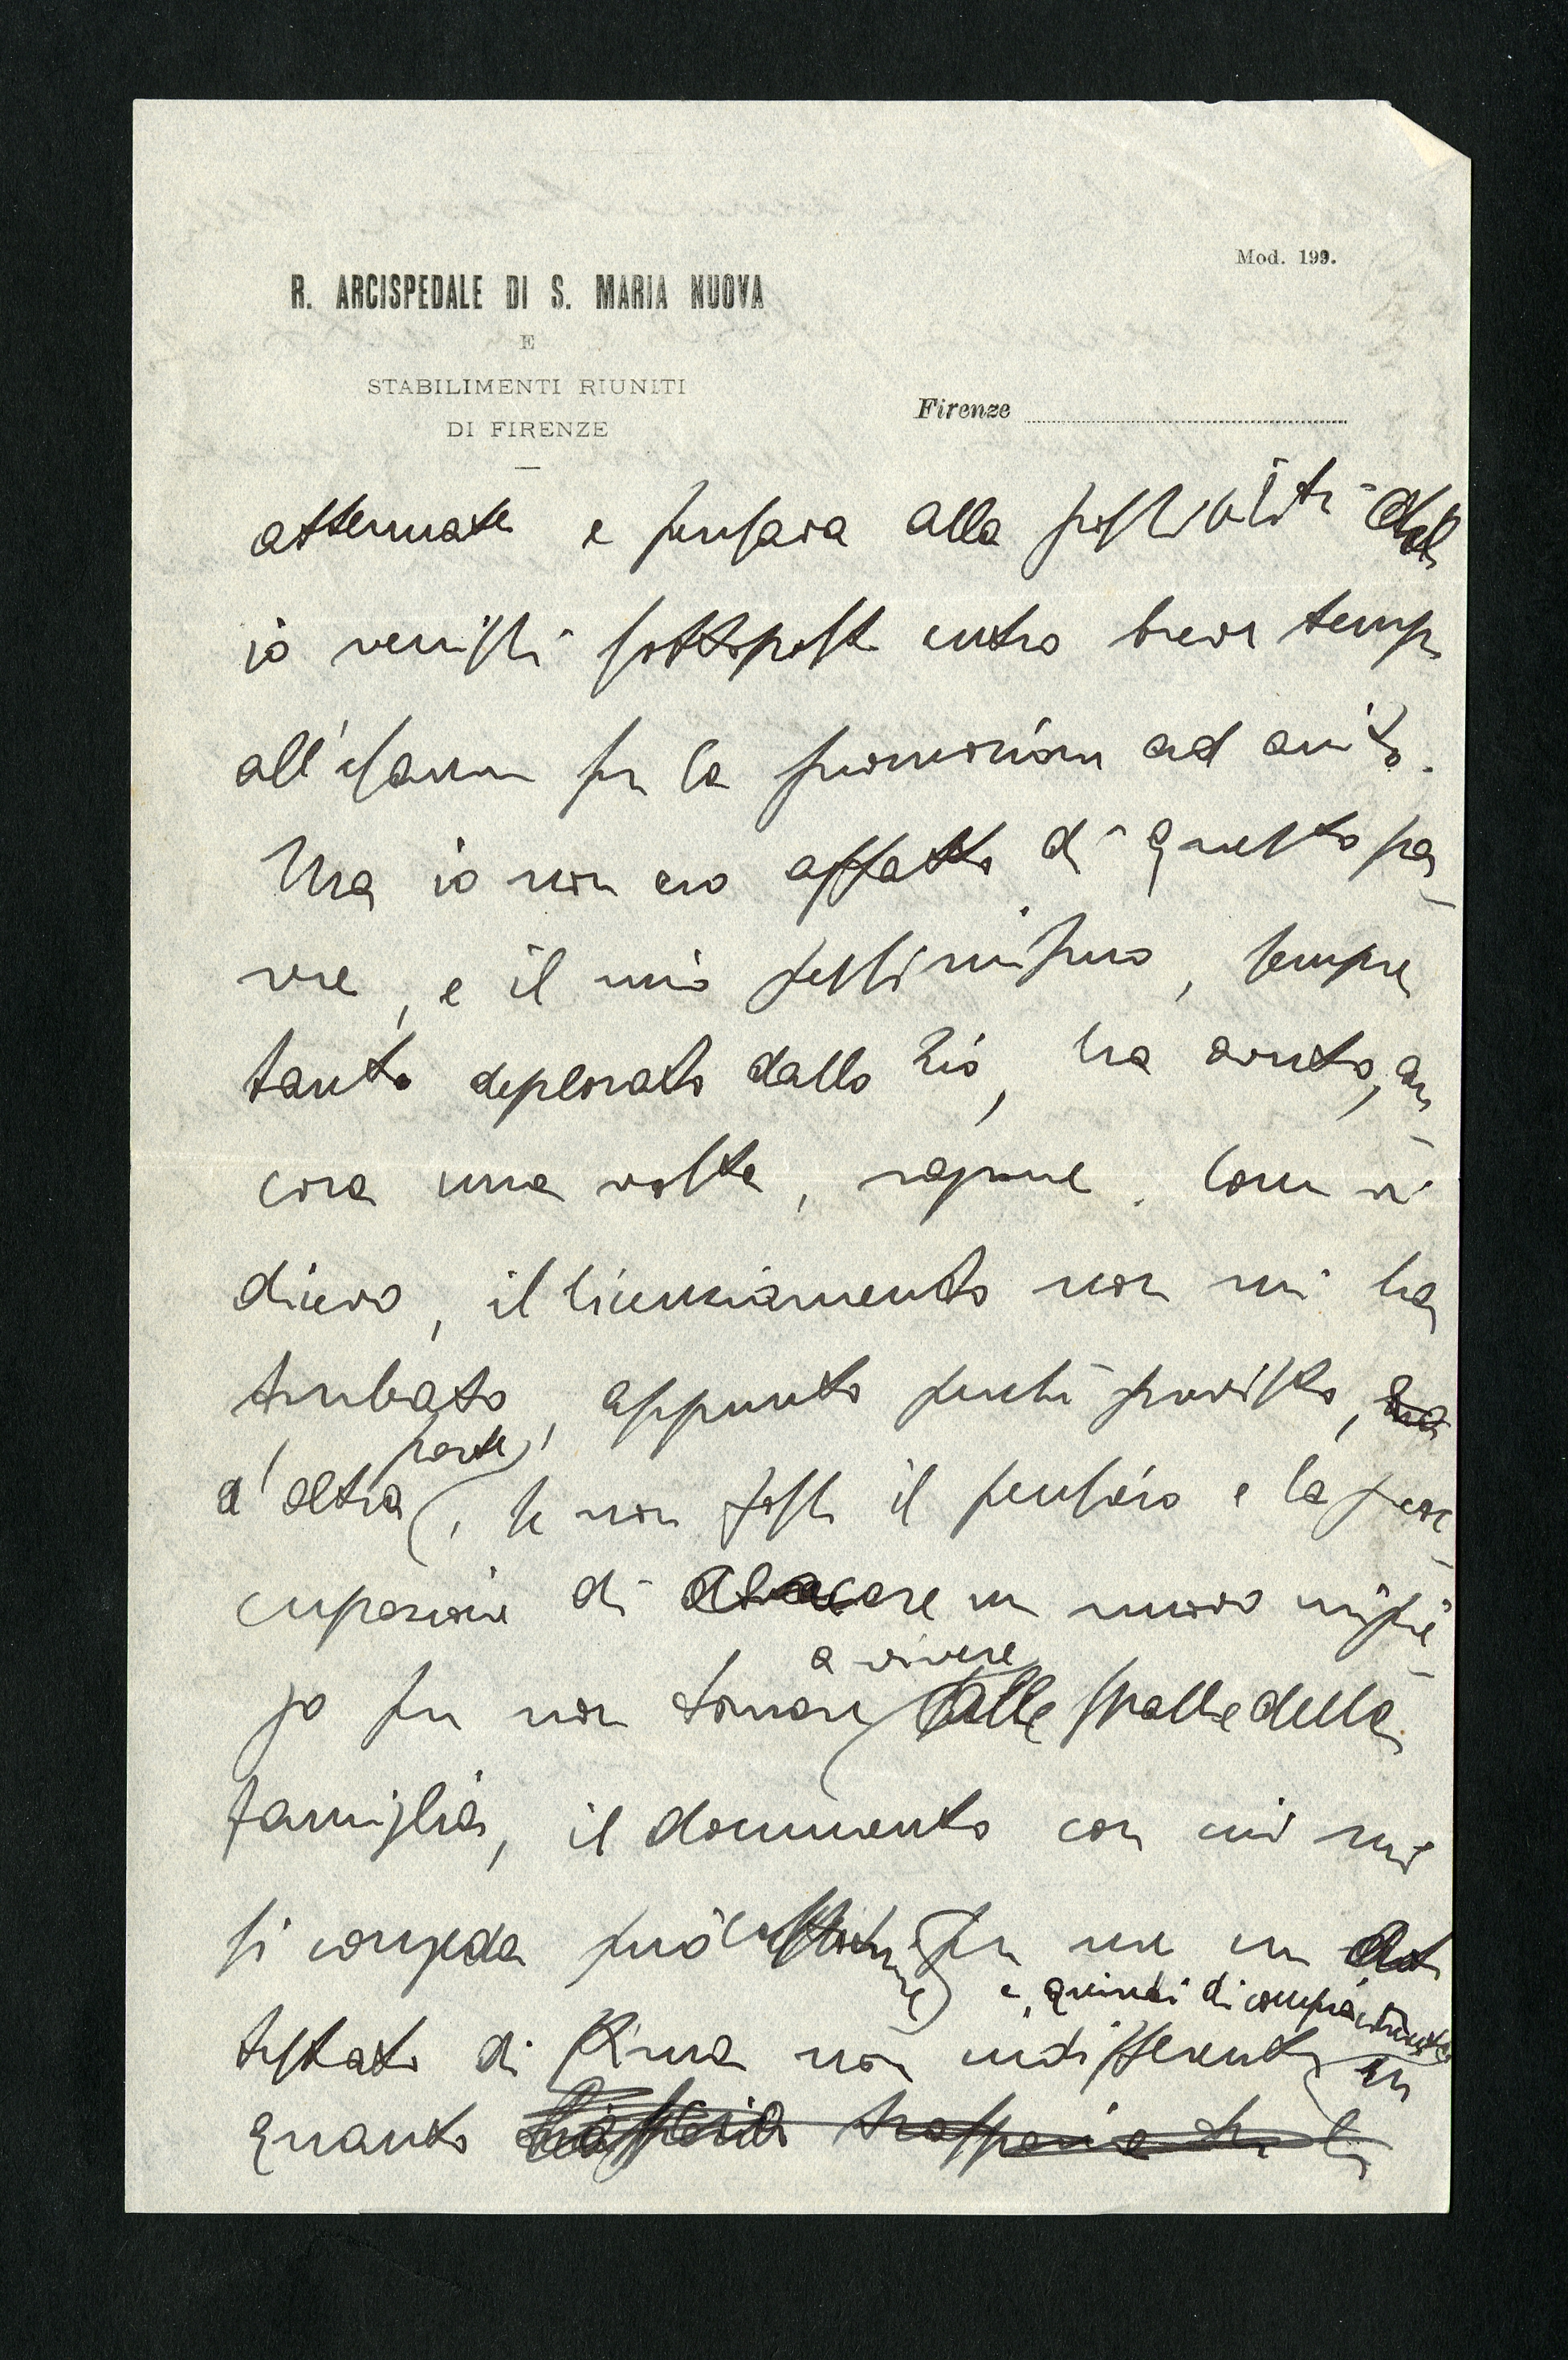 Mod. 199.
R. ARCISPEDALE DI S. MARIA NUOVA
E
STABILIMENTI RIUNITI
DI FIRENZE
Firenze
attenuate e pensava alla possibilità che
io venissi sottoposto entro breve tempo
all'esame per la promozione ad aiuto.
Ma io non ero affatto di questo pa-
rere, e il mio pessimismo, sempre
tanto deplorato dallo zio, ha avuto, an
cora una volta, ragione. Come vi
dicevo, il licenziamento non mi ha
turbato, appunto perché previsto, ma
d'altra parte, se non fosse il pensiero e la preoc-
cupazione di cercare un nuovo impie-
go per non tornare a vivere alle spalle della
famiglia, il documento con cui mi
si congeda può costituire per me un at
testato di stima non indifferente e quindi di compiacimento in
quanto